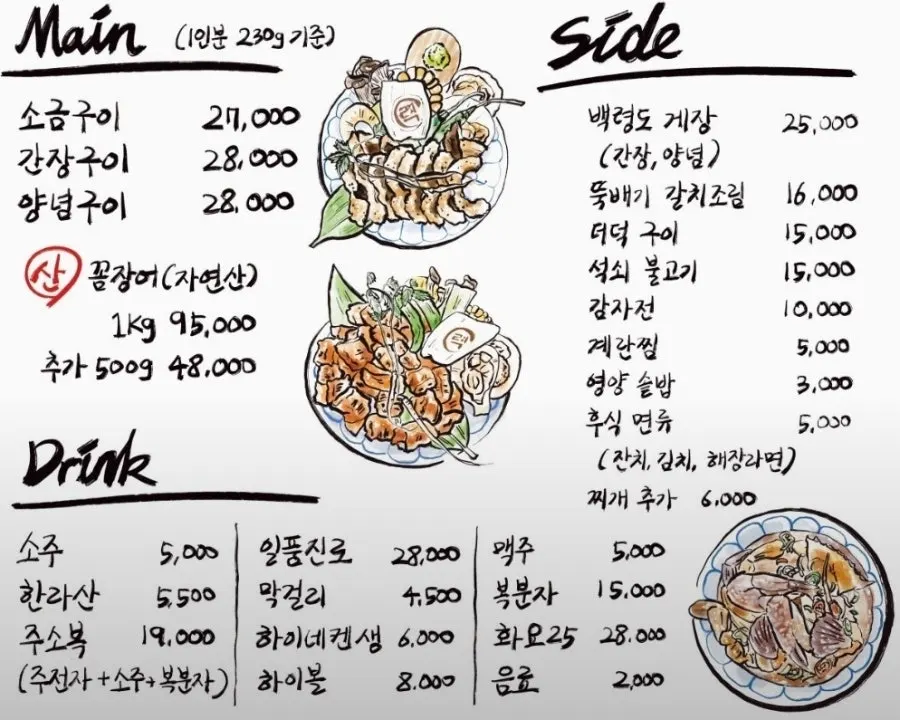 Main (1인분 230g 기준)
소금구이 27,000
간장구이 28,000
양념구이 28,000
산 꼼장어(자연산)
1kg 95,000
추가 500g 48,000
Side
백령도 게장 25,000
(간장, 양념)
뚝배기 갈치조림 16,000
더덕 구이 15,000
석쇠 불고기 15,000
감자전 10,000
계란찜 5,000
영양 솥밥 3,000
후식 면류 5,000
(잔치, 김치, 해장라면)
찌개 추가 6,000
Drink
소주 5,000
한라산 5,500
주소복 19,000
(주전자+소주+복분자)
일품진로 28,000
막걸리 4,500
하이네켄생 6,000
하이볼 8.000
맥주 5,000
복분자 15,000
화요25 28,000
음료 2,000